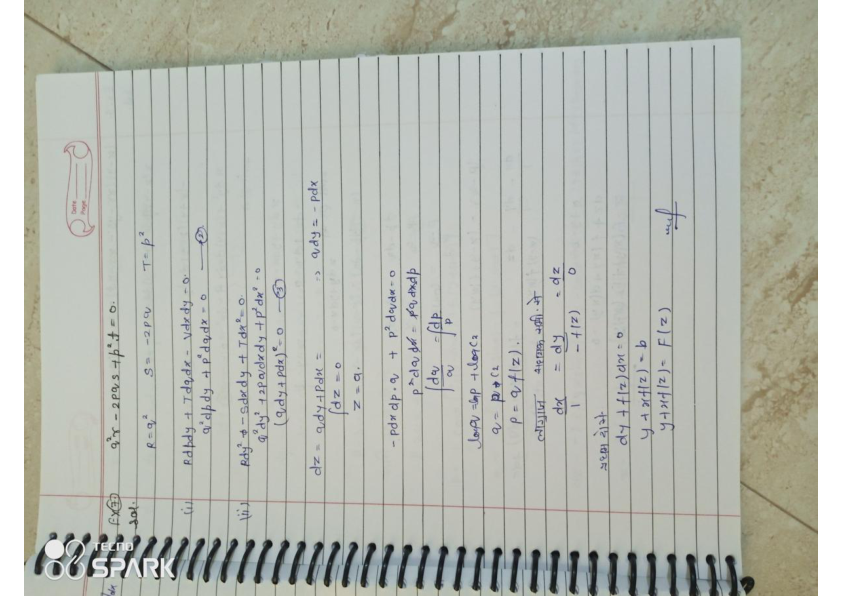 Date
Page
Ex ⑦ q²r - 2pqs + p²t = 0.
Sol.
R = q² S = -2pq T = p²
(i) Rdpdy + Tdqdx - Vdxdy = 0.
q²dpdy + p²dqdx = 0 — ②
(ii) Rdy² - Sdxdy + Tdx² = 0.
q²dy² + 2pqdxdy + p²dx² = 0
(qdy + pdx)² = 0 — ③
dz = qdy + pdx = ⇒ qdy = -pdx
∫dz = 0
z = a.
-pdxdp.q + p²dqdx = 0
p²dqdx = pqdxdp
∫dq/q = ∫dp/p
logq = logp + logc₂
q = pc₂
p = qf(z).
लाग्रांज सहायक समी. से
dx/1 = dy/-f(z) = dz/0
dy + f(z)dx = 0
y + xf(z) = b
y + xf(z) = F(z)
TECNO
SPARK